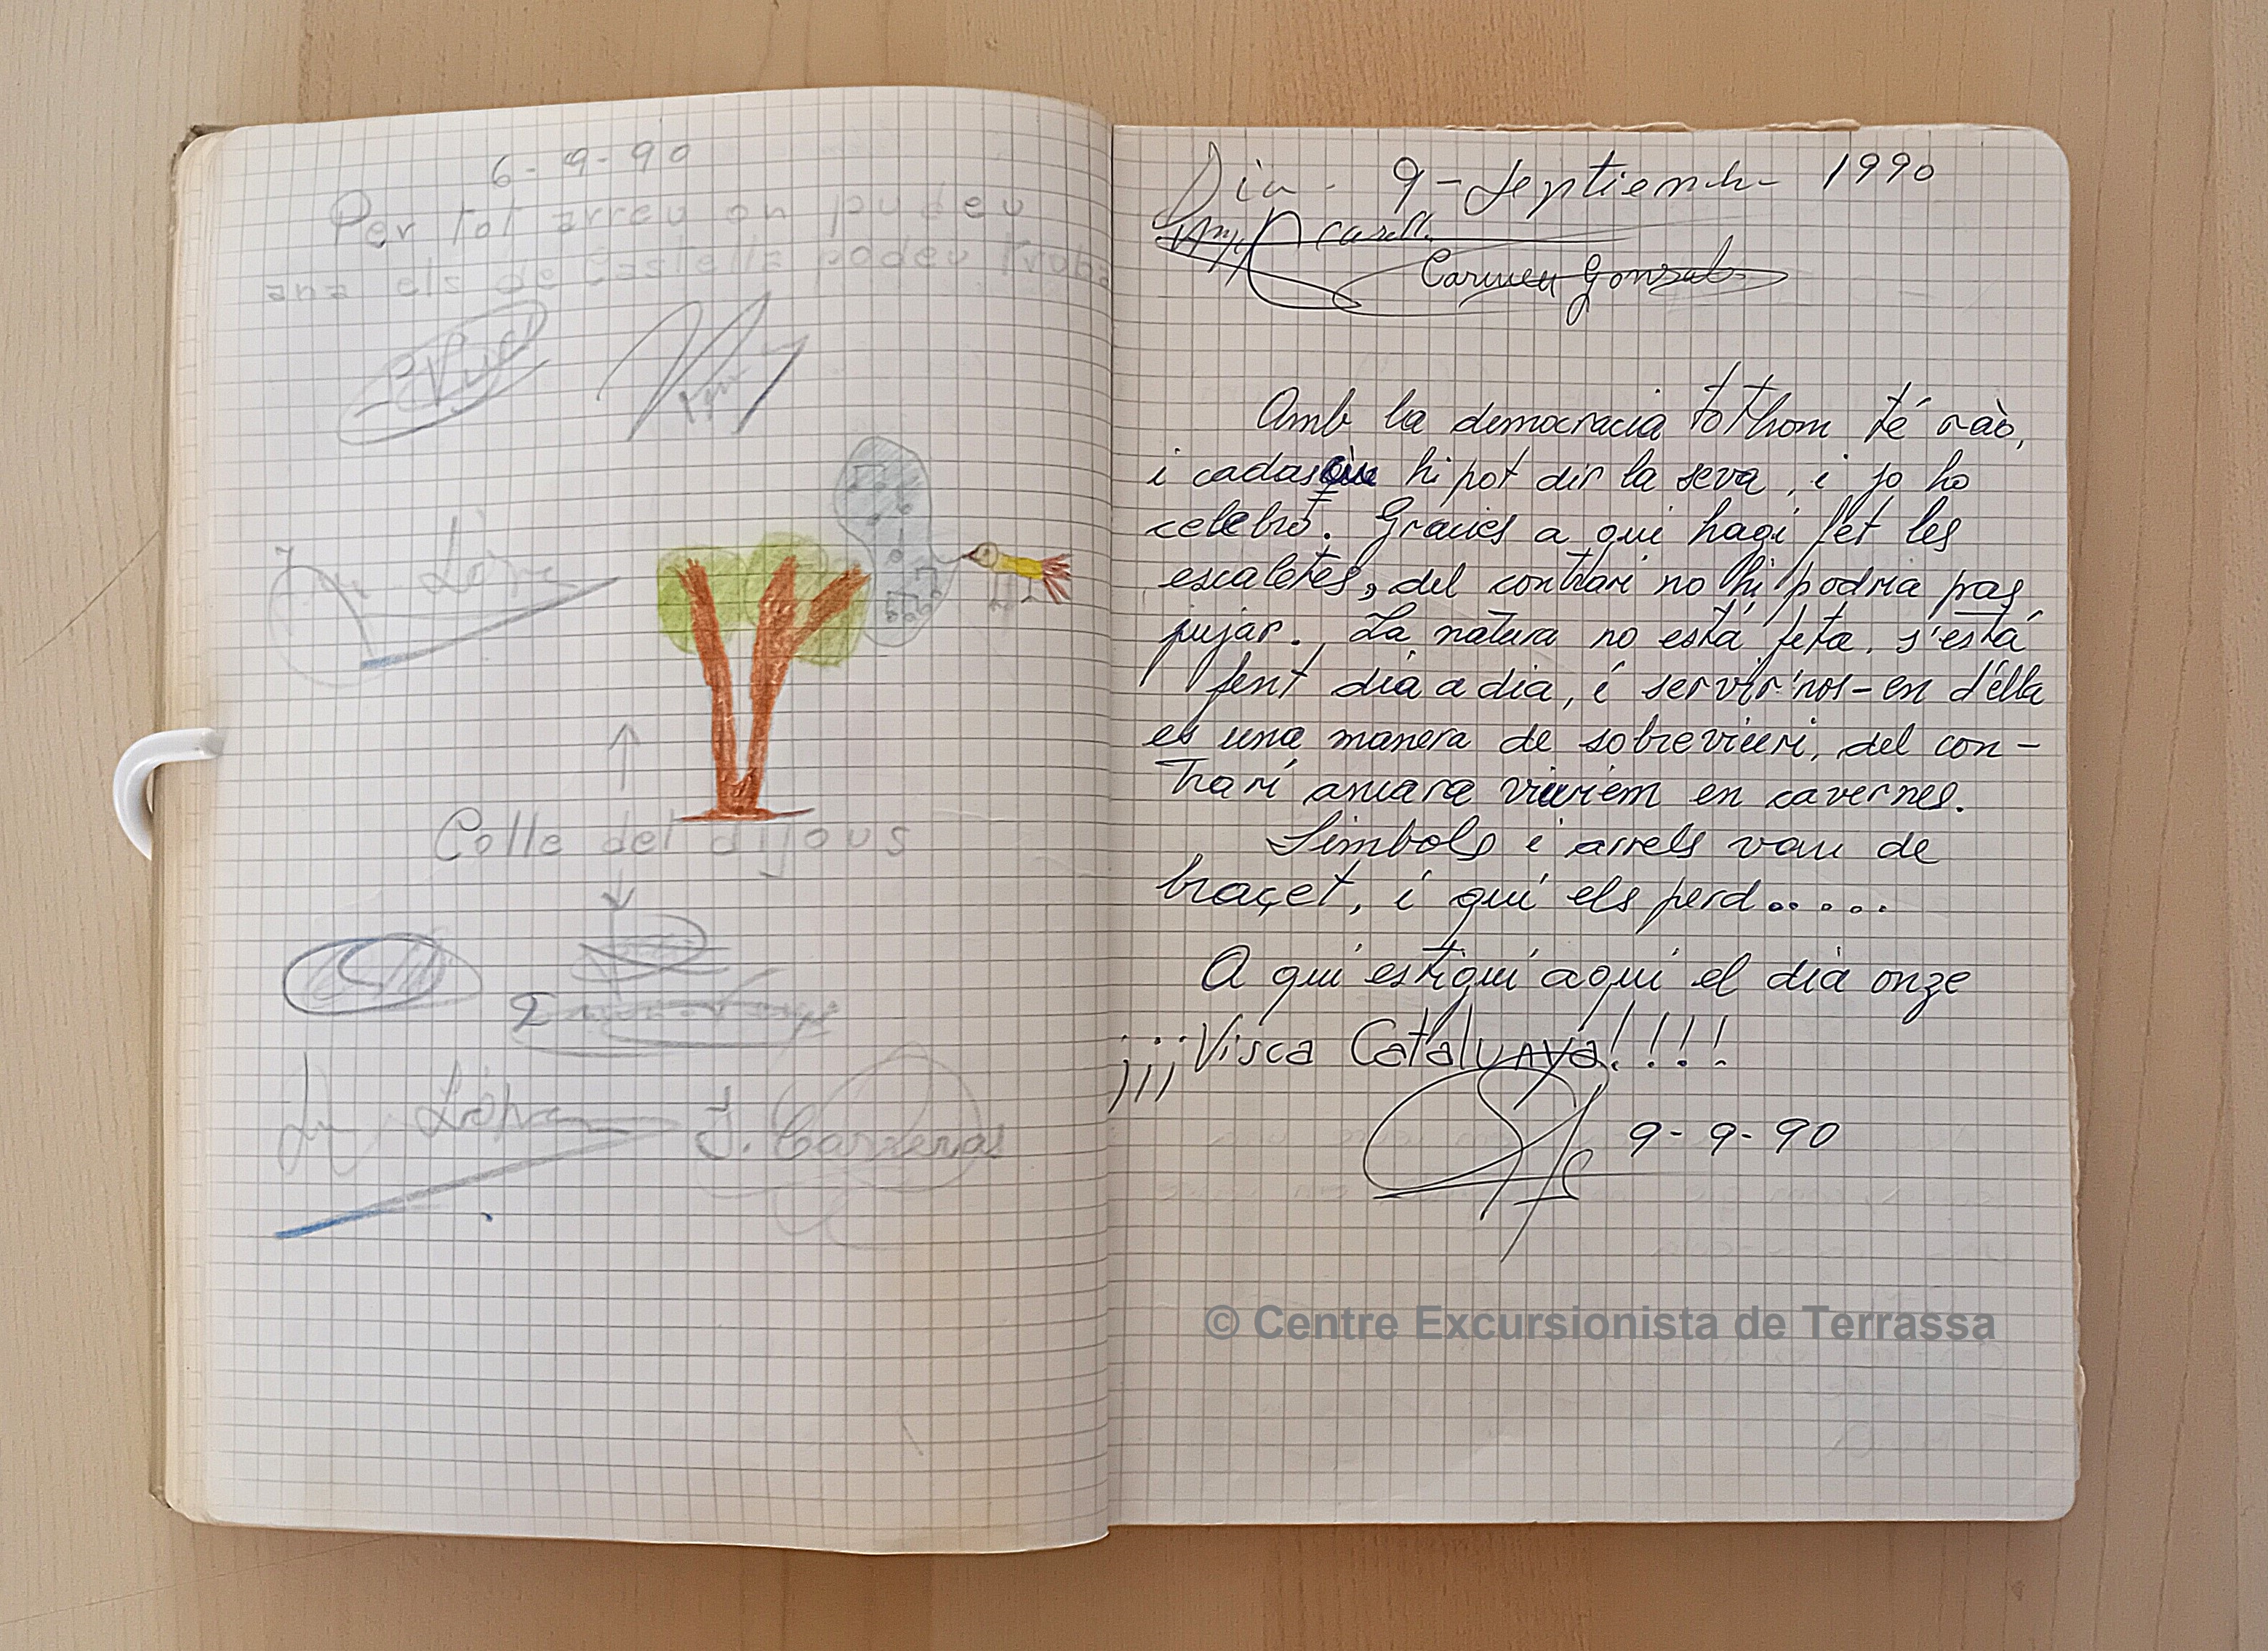 6-9-90
Per tot arreu on pudeu
ana els de Castella podeu troba
López
Colle del dijous
López
J. Carreras
Dia - 9 - Septiembre 1990
Carmen Gonzalez
Amb la democracia tothom té raò,
i cadasqùu hi pot dir la seva, i jo ho
celebro. Gracies a qui hagi fet les
escaletes, del contrari no hi podria pas
pujar. La natura no está feta, s'está
fent dia a dia, i servir'nos-en d'élla
es una manera de sobreviuri, del con-
trari ancara viuriem en cavernes.
Simbols i arrels van de
braçet, i qui els perd.....
A qui estigui aqui el dia onze
¡¡¡Visca Catalunya!!!!
9-9-90
© Centre Excursionista de Terrassa